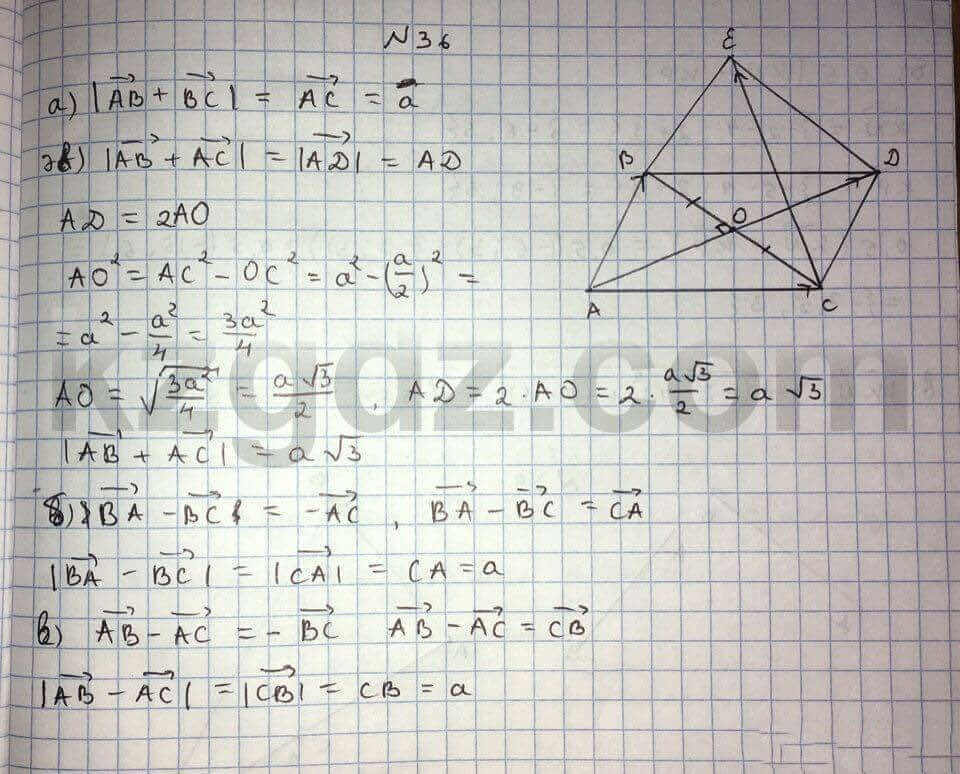 N36
а) |AB⃗ + BC⃗| = AC⃗ = a
|AB⃗ + AC⃗| = |AD⃗| = AD
AD = 2AO
AO² = AC² - OC² = a² - (a/2)² =
= a² - a²/4 = 3a²/4
AO = √(3a²/4) = a√3/2 , AD = 2·AO = 2·a√3/2 = a√3
|AB⃗ + AC⃗| = a√3
б) BA⃗ - BC⃗ = -AC⃗ , BA⃗ - BC⃗ = CA⃗
|BA⃗ - BC⃗| = |CA⃗| = CA = a
в) AB⃗ - AC⃗ = - BC⃗ AB⃗ - AC⃗ = CB⃗
|AB⃗ - AC⃗| = |CB⃗| = CB = a
E
B
D
O
A
C
kzgdz.com